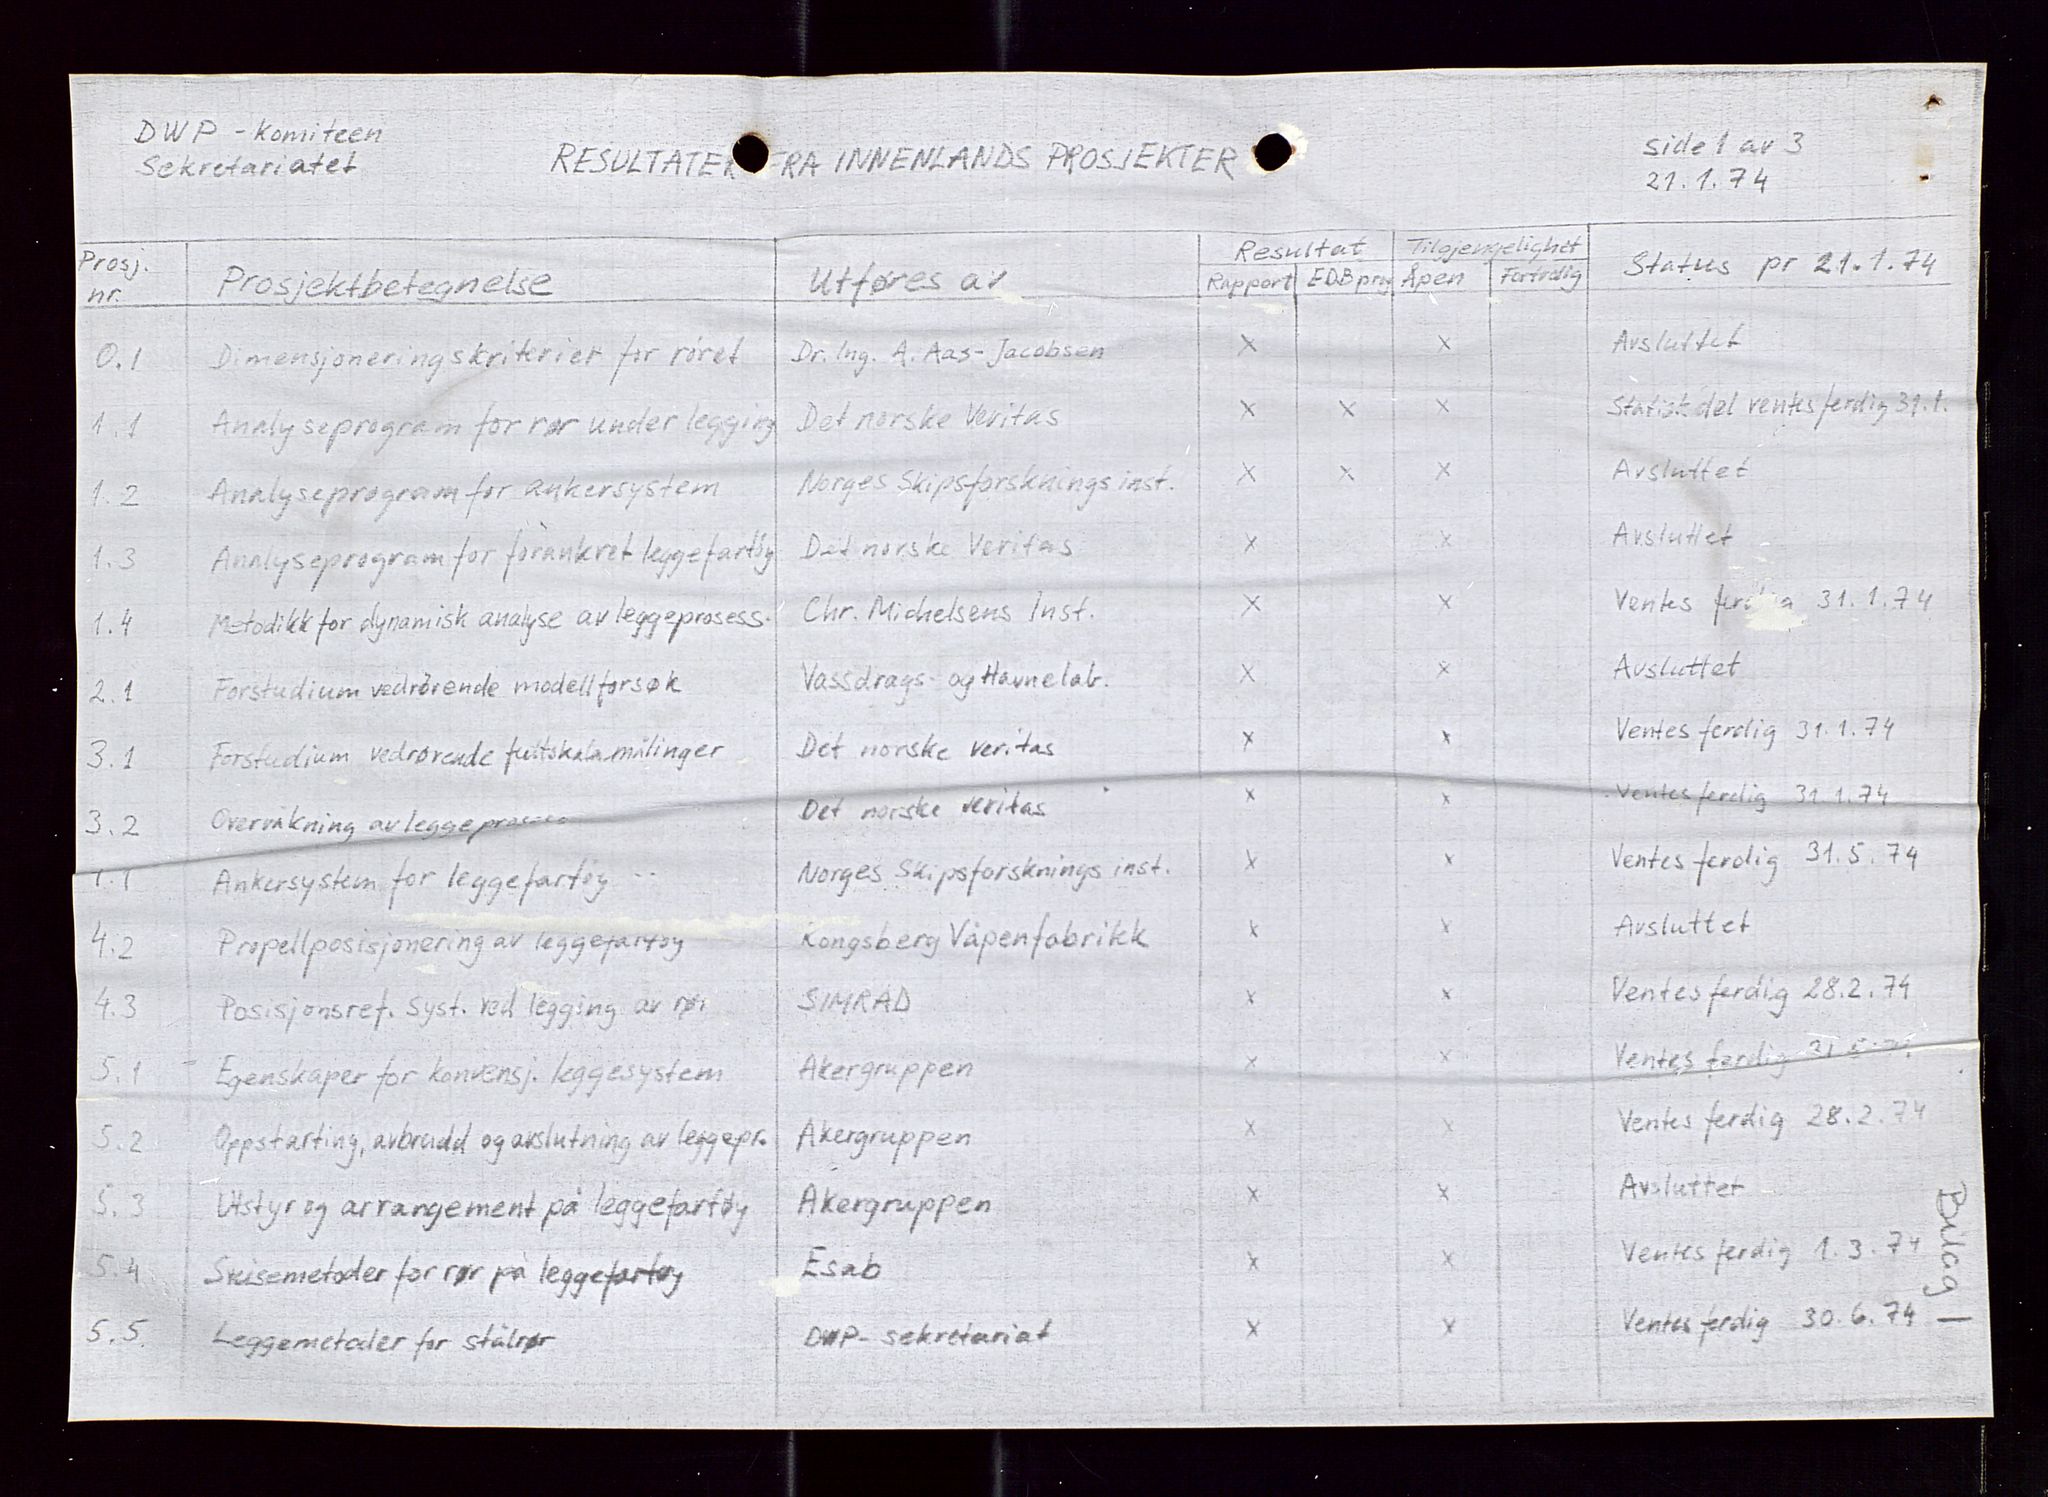 DWP - Komiteen
Sekretariatet
RESULTATER FRA INNENLANDS PROSJEKTER
side 1 av 3
21.1.74
Prosj. nr. Prosjektbetegnelse Utføres av Resultat Rapport EDB prog Tilgjengelighet Åpen Fortrolig Status pr 21.1.74
0.1 Dimensjoneringskriterier for røret Dr. Ing. A. Aas-Jacobsen x x Avsluttet
1.1 Analyseprogram for rør under legging Det norske Veritas x x x Statisk del ventes ferdig 31.1.
1.2 Analyseprogram for ankersystem Norges Skipsforsknings inst. x x x Avsluttet
1.3 Analyseprogram for forankret leggefartøy Det norske Veritas x x Avsluttet
1.4 Metodikk for dynamisk analyse av leggeprosess. Chr. Michelsens Inst. x x Ventes ferdig 31.1.74
2.1 Forstudium vedrørende modellforsøk Vassdrags- og Havnelab. x x Avsluttet
3.1 Forstudium vedrørende fullskala målinger Det norske veritas x x Ventes ferdig 31.1.74
3.2 Overvåkning av leggeprosess Det norske veritas x x Ventes ferdig 31.1.74
Ankersystem for leggefartøy Norges Skipsforsknings inst. x x Ventes ferdig 31.5.74
4.2 Propellposisjonering av leggefartøy Kongsberg Våpenfabrikk x x Avsluttet
4.3 Posisjonsref. syst. ved legging av rør SIMRAD x x Ventes ferdig 28.2.74
5.1 Egenskaper for konvensj. leggesystem Akergruppen x x Ventes ferdig 31.5.74
5.2 Oppstarting, avbrudd og avslutning av leggepr. Akergruppen x x Ventes ferdig 28.2.74
5.3 Utstyr og arrangement på leggefartøy Akergruppen x x Avsluttet
5.4 Sveisemetoder for rør på leggefartøy Esab x x Ventes ferdig 1.3.74
5.5 Leggemetoder for stålrør DWP- sekretariat x x Ventes ferdig 30.6.74
Bilag 1